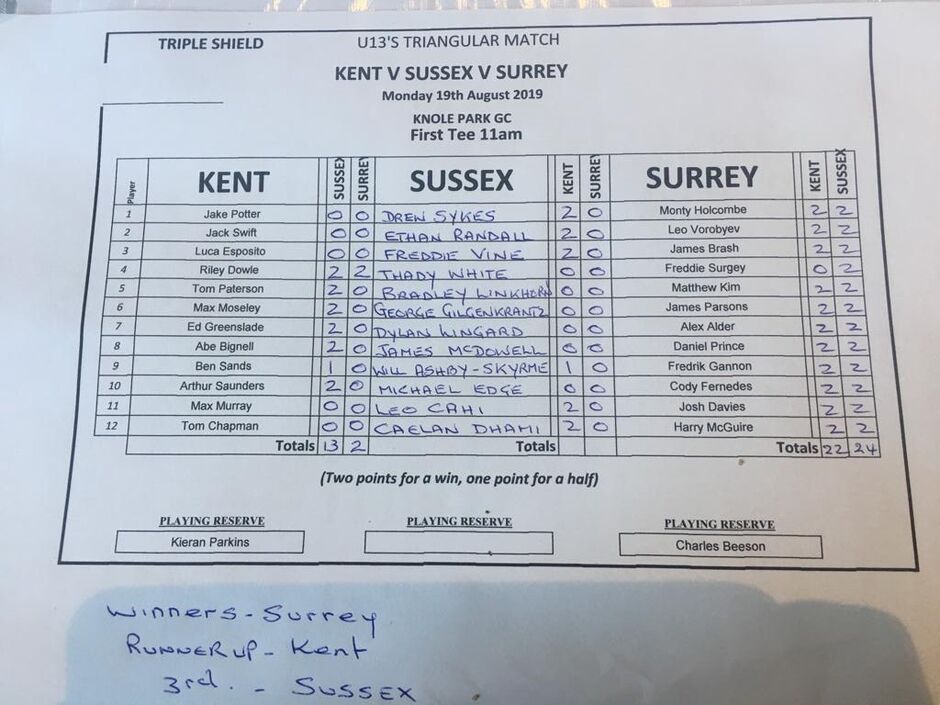 TRIPLE SHIELD U13'S TRIANGULAR MATCH
KENT V SUSSEX V SURREY
Monday 19th August 2019
KNOLE PARK GC
First Tee 11am
Player KENT SUSSEX SURREY SUSSEX KENT SURREY SURREY KENT SUSSEX
1 Jake Potter 0 0 DREN SYKES 2 0 Monty Holcombe 2 2
2 Jack Swift 0 0 ETHAN RANDALL 2 0 Leo Vorobyev 2 2
3 Luca Esposito 0 0 FREDDIE VINE 2 0 James Brash 2 2
4 Riley Dowle 2 2 THADY WHITE 0 0 Freddie Surgey 0 2
5 Tom Paterson 2 0 BRADLEY LINKHORN 0 0 Matthew Kim 2 2
6 Max Moseley 2 0 GEORGE GILGENKRANTZ 0 0 James Parsons 2 2
7 Ed Greenslade 2 0 DYLAN LINGARD 0 0 Alex Alder 2 2
8 Abe Bignell 2 0 JAMES MCDOWELL 0 0 Daniel Prince 2 2
9 Ben Sands 1 0 WILL ASHBY-SKYRME 1 0 Fredrik Gannon 2 2
10 Arthur Saunders 2 0 MICHAEL EDGE 0 0 Cody Fernedes 2 2
11 Max Murray 0 0 LEO CAHI 2 0 Josh Davies 2 2
12 Tom Chapman 0 0 CAELAN DHAMI 2 0 Harry McGuire 2 2
Totals 13 2 Totals Totals 22 24
(Two points for a win, one point for a half)
PLAYING RESERVE PLAYING RESERVE PLAYING RESERVE
Kieran Parkins Charles Beeson
Winners - Surrey
RUNNER UP - Kent
3rd. - SUSSEX